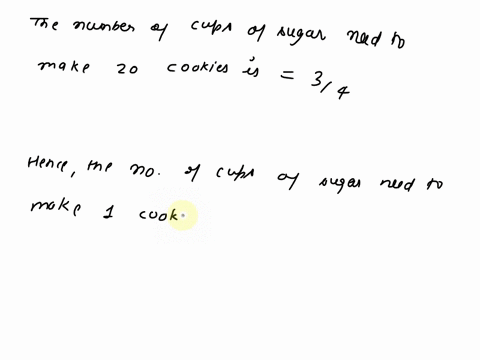 The number of cups of sugar need to
make 20 cookies is = 3/4
Hence, the no. of cups of sugar need to
make 1 cook